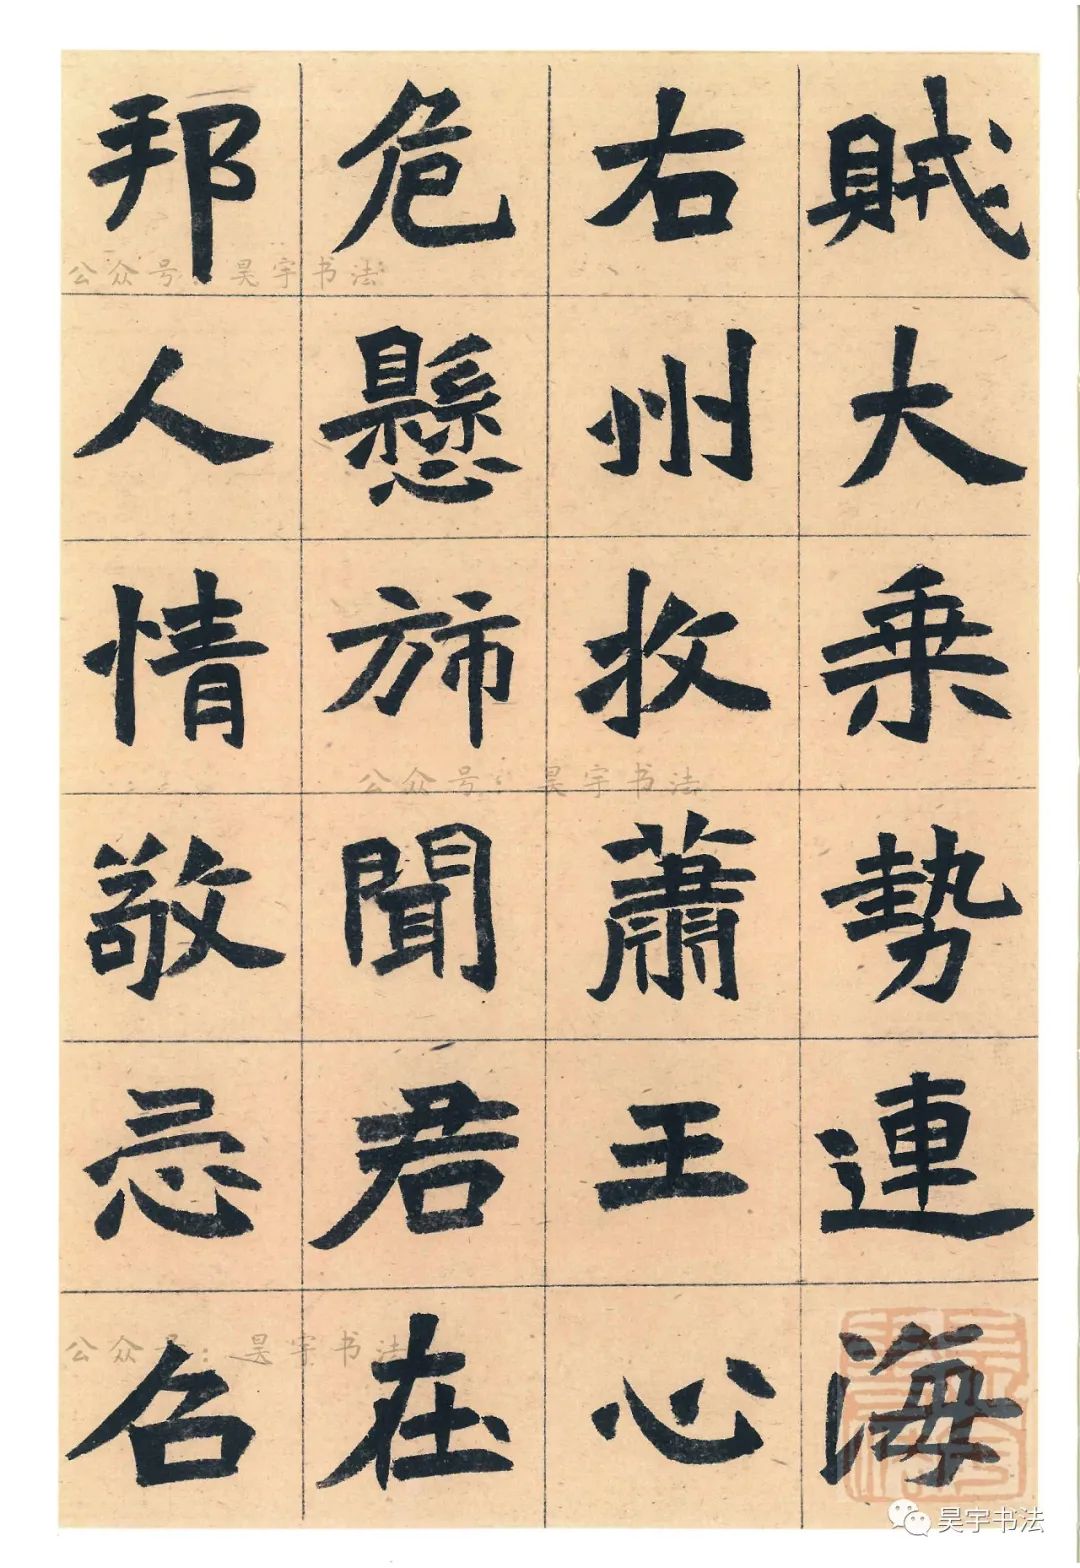 賊大乗勢連海
右州牧蕭王心
危懸旆聞君在
邦人情敬忌召
公众号：昊宇书法
公众号：昊宇书法
公众号：昊宇书法
昊宇书法